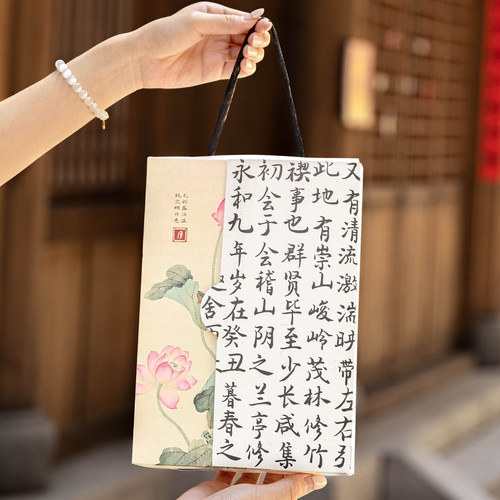 永和九年岁在癸丑暮春之
初会于会稽山阴之兰亭修
禊事也群贤毕至少长咸集
此地有崇山峻岭茂林修竹
又有清流激湍映带左右引
舍